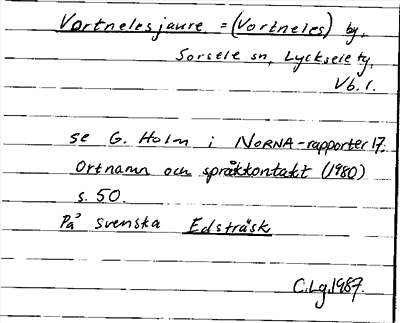 Vortnelesjaure = (Vortneles) by,
Sorsele sn, Lycksele tg,
Vb. l.
se G. Holm i NORNA-rapporter 17.
Ortnamn och språkkontakt (1980)
s. 50.
På svenska Edsträsk
C.Lg.1987.